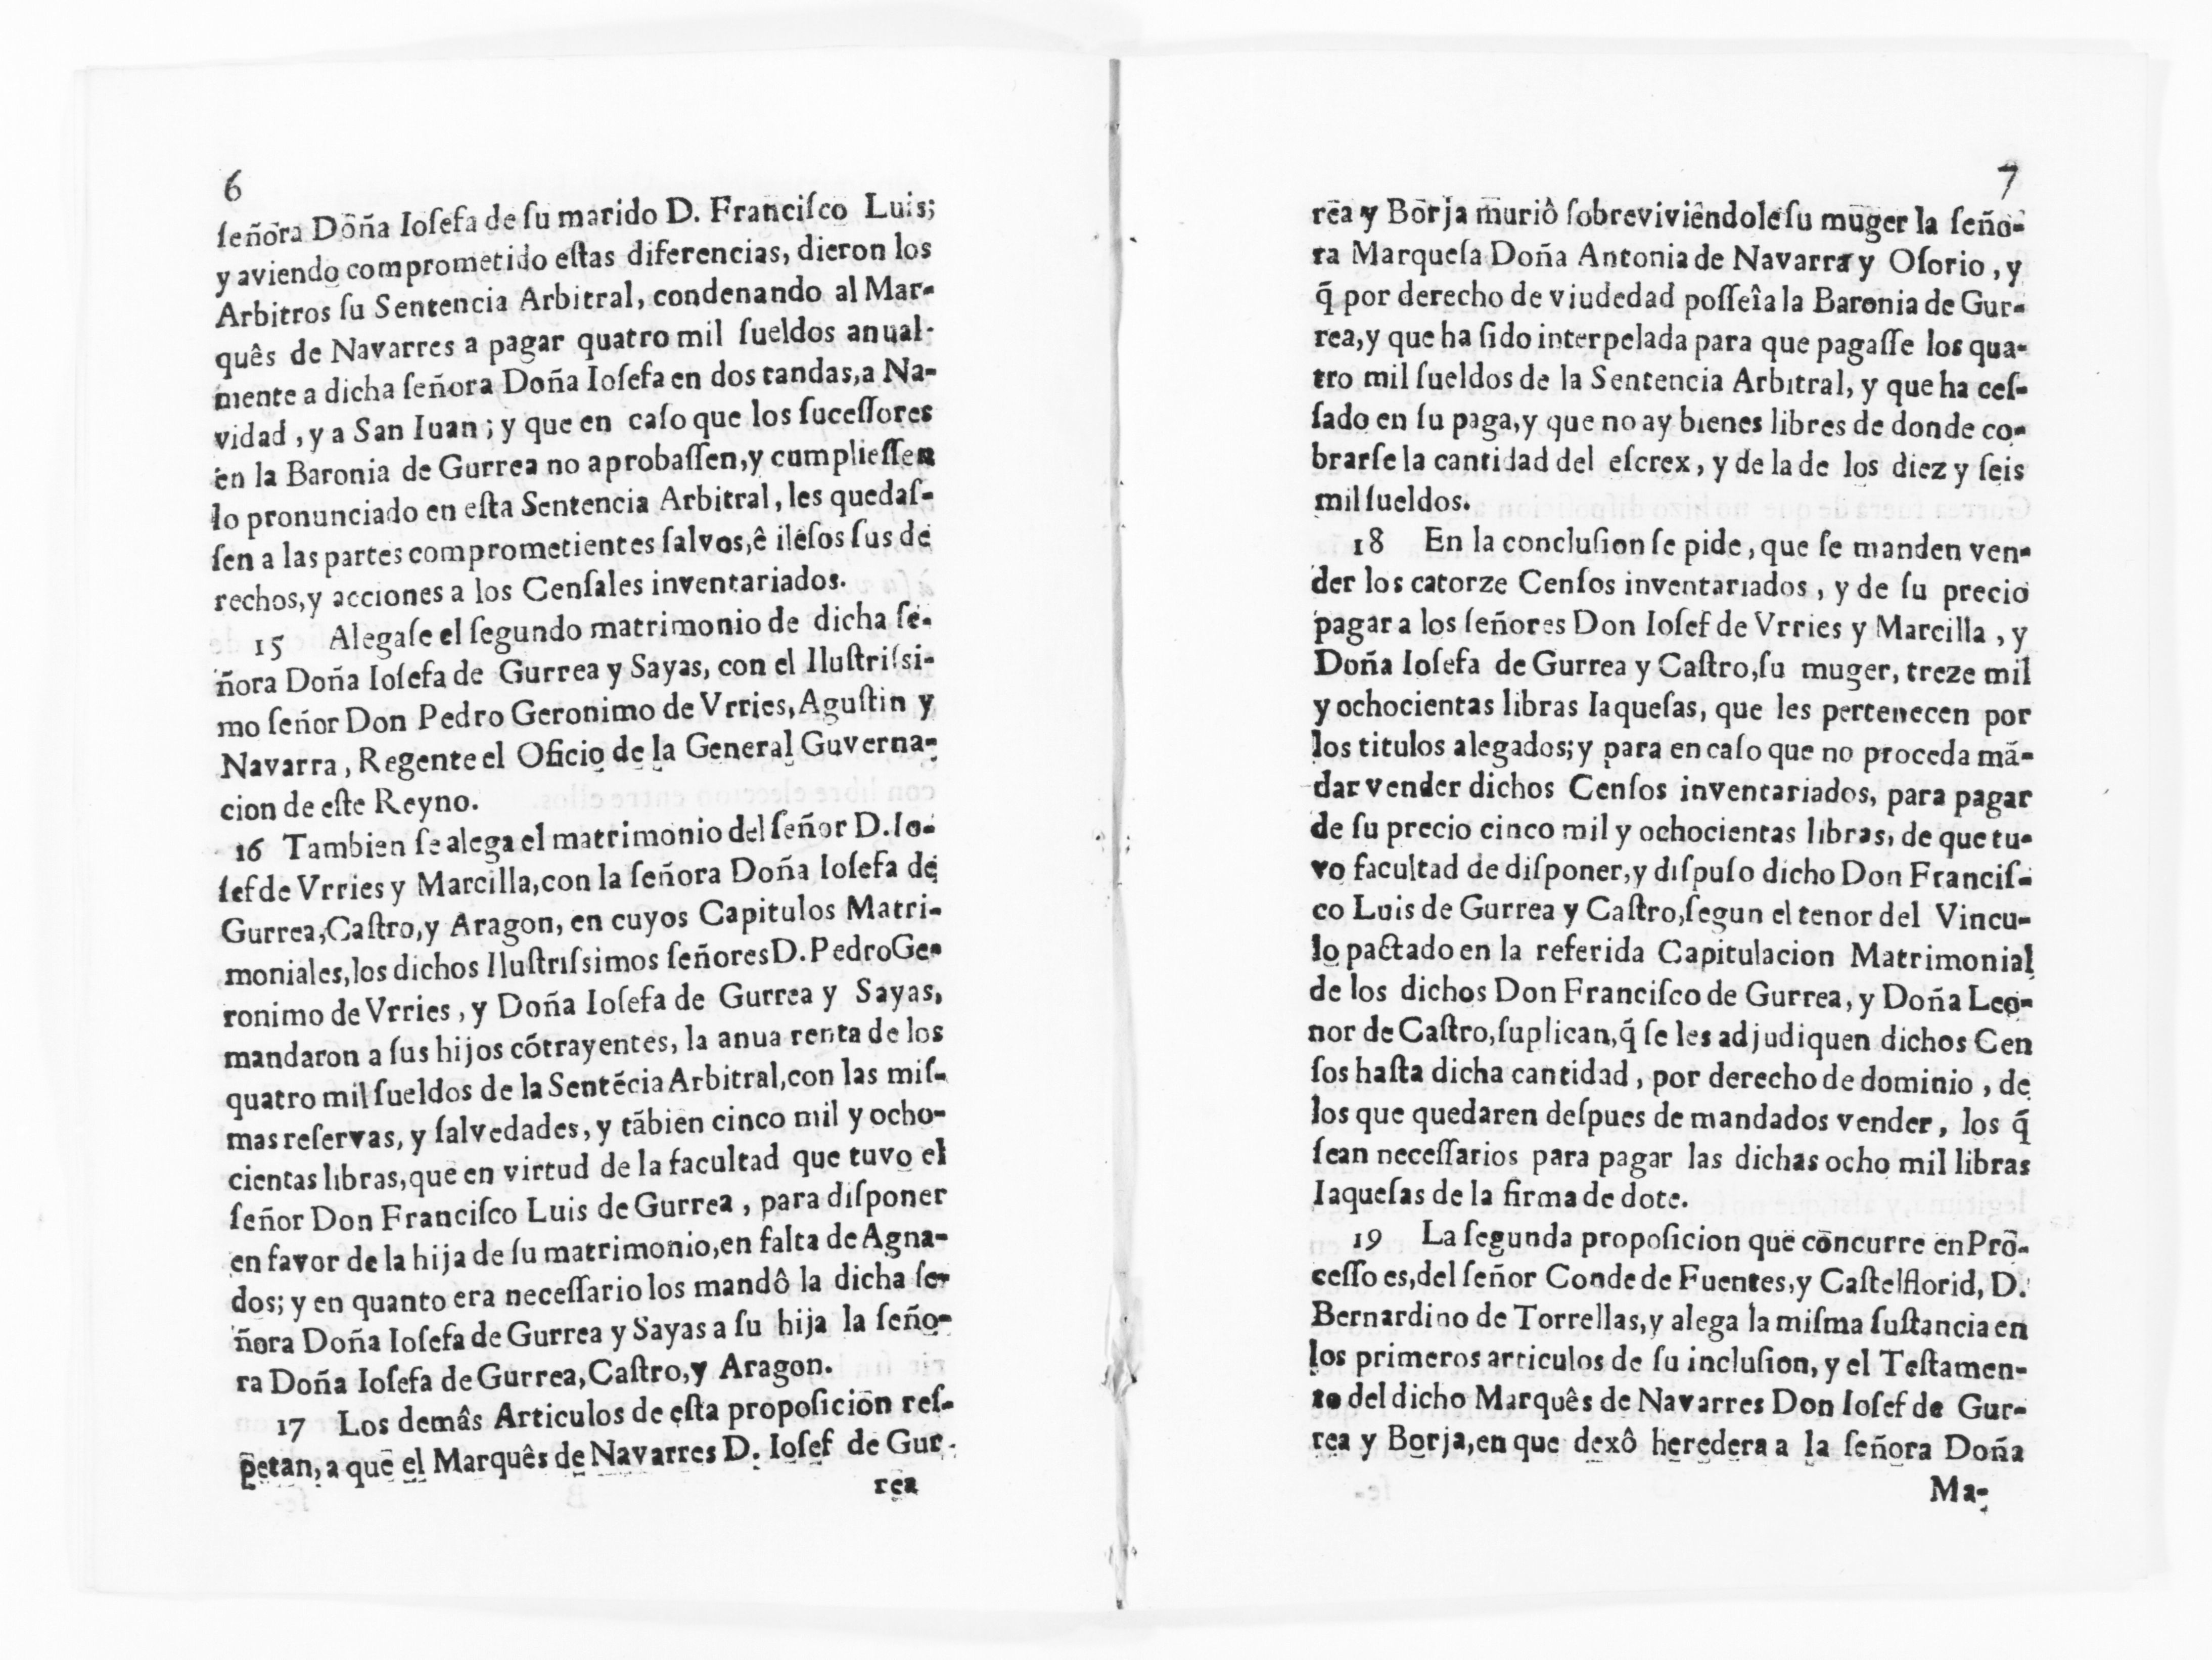 6
ſeñora Doña Ioſefa de ſu marido D. Franciſco Luis;
y aviendo comprometido eſtas diferencias, dieron los
Arbitros ſu Sentencia Arbitral, condenando al Mar-
quês de Navarres a pagar quatro mil ſueldos anual-
mente a dicha ſeñora Doña Ioſefa en dos tandas, a Na-
vidad, y a San Iuan; y que en caſo que los ſuceſſores
en la Baronia de Gurrea no aprobaſſen, y cumplieſſen
lo pronunciado en eſta Sentencia Arbitral, les quedaſ-
ſen a las partes comprometientes ſalvos, ê ileſos ſus de
rechos, y acciones a los Cenſales inventariados.
15 Alegaſe el ſegundo matrimonio de dicha ſe-
ñora Doña Ioſefa de Gurrea y Sayas, con el Iluſtriſsi-
mo ſeñor Don Pedro Geronimo de Vrries, Aguſtin y
Navarra, Regente el Oficio de la General Guverna-
cion de eſte Reyno.
16 Tambien ſe alega el matrimonio del ſeñor D. Io-
ſef de Vrries y Marcilla, con la ſeñora Doña Ioſefa de
Gurrea, Caſtro, y Aragon, en cuyos Capitulos Matri-
moniales, los dichos Iluſtriſsimos ſeñores D. Pedro Ge-
ronimo de Vrries, y Doña Ioſefa de Gurrea y Sayas,
mandaron a ſus hijos cõtrayentes, la anua renta de los
quatro mil ſueldos de la Sentẽcia Arbitral, con las miſ-
mas reſervas, y ſalvedades, y tãbien cinco mil y ocho-
cientas libras, que en virtud de la facultad que tuvo el
ſeñor Don Franciſco Luis de Gurrea, para diſponer
en favor de la hija de ſu matrimonio, en falta de Agna-
dos; y en quanto era neceſſario los mandô la dicha ſe-
ñora Doña Ioſefa de Gurrea y Sayas a ſu hija la ſeño-
ra Doña Ioſefa de Gurrea, Caſtro, y Aragon.
17 Los demâs Articulos de eſta propoſicion reſ-
petan, a que el Marquês de Navarres D. Ioſef de Gur-
rea
7
rea y Borja muriô ſobreviviendole ſu muger la ſeño-
ra Marqueſa Doña Antonia de Navarra y Oſorio, y
q̃ por derecho de viudedad poſſeîa la Baronia de Gur-
rea, y que ha ſido interpelada para que pagaſſe los qua-
tro mil ſueldos de la Sentencia Arbitral, y que ha ceſ-
ſado en ſu paga, y que no ay bienes libres de donde co-
brarſe la cantidad del eſcrex, y de la de los diez y ſeis
mil ſueldos.
18 En la concluſion ſe pide, que ſe manden ven-
der los catorze Cenſos inventariados, y de ſu precio
pagar a los ſeñores Don Ioſef de Vrries y Marcilla, y
Doña Ioſefa de Gurrea y Caſtro, ſu muger, treze mil
y ochocientas libras Iaqueſas, que les pertenecen por
los titulos alegados; y para en caſo que no proceda mã-
dar vender dichos Cenſos inventariados, para pagar
de ſu precio cinco mil y ochocientas libras, de que tu-
vo facultad de diſponer, y diſpuſo dicho Don Franciſ-
co Luis de Gurrea y Caſtro, ſegun el tenor del Vincu-
lo pactado en la referida Capitulacion Matrimonial
de los dichos Don Franciſco de Gurrea, y Doña Leo-
nor de Caſtro, ſuplican, q̃ ſe les adjudiquen dichos Cen
ſos haſta dicha cantidad, por derecho de dominio, de
los que quedaren deſpues de mandados vender, los q̃
ſean neceſſarios para pagar las dichas ocho mil libras
Iaqueſas de la firma de dote.
19 La ſegunda propoſicion que concurre en Pro-
ceſſo es, del ſeñor Conde de Fuentes, y Caſtelflorid, D.
Bernardino de Torrellas, y alega la miſma ſuſtancia en
los primeros articulos de ſu incluſion, y el Teſtamen-
to del dicho Marquês de Navarres Don Ioſef de Gur-
rea y Borja, en que dexô heredera a la ſeñora Doña
Ma-